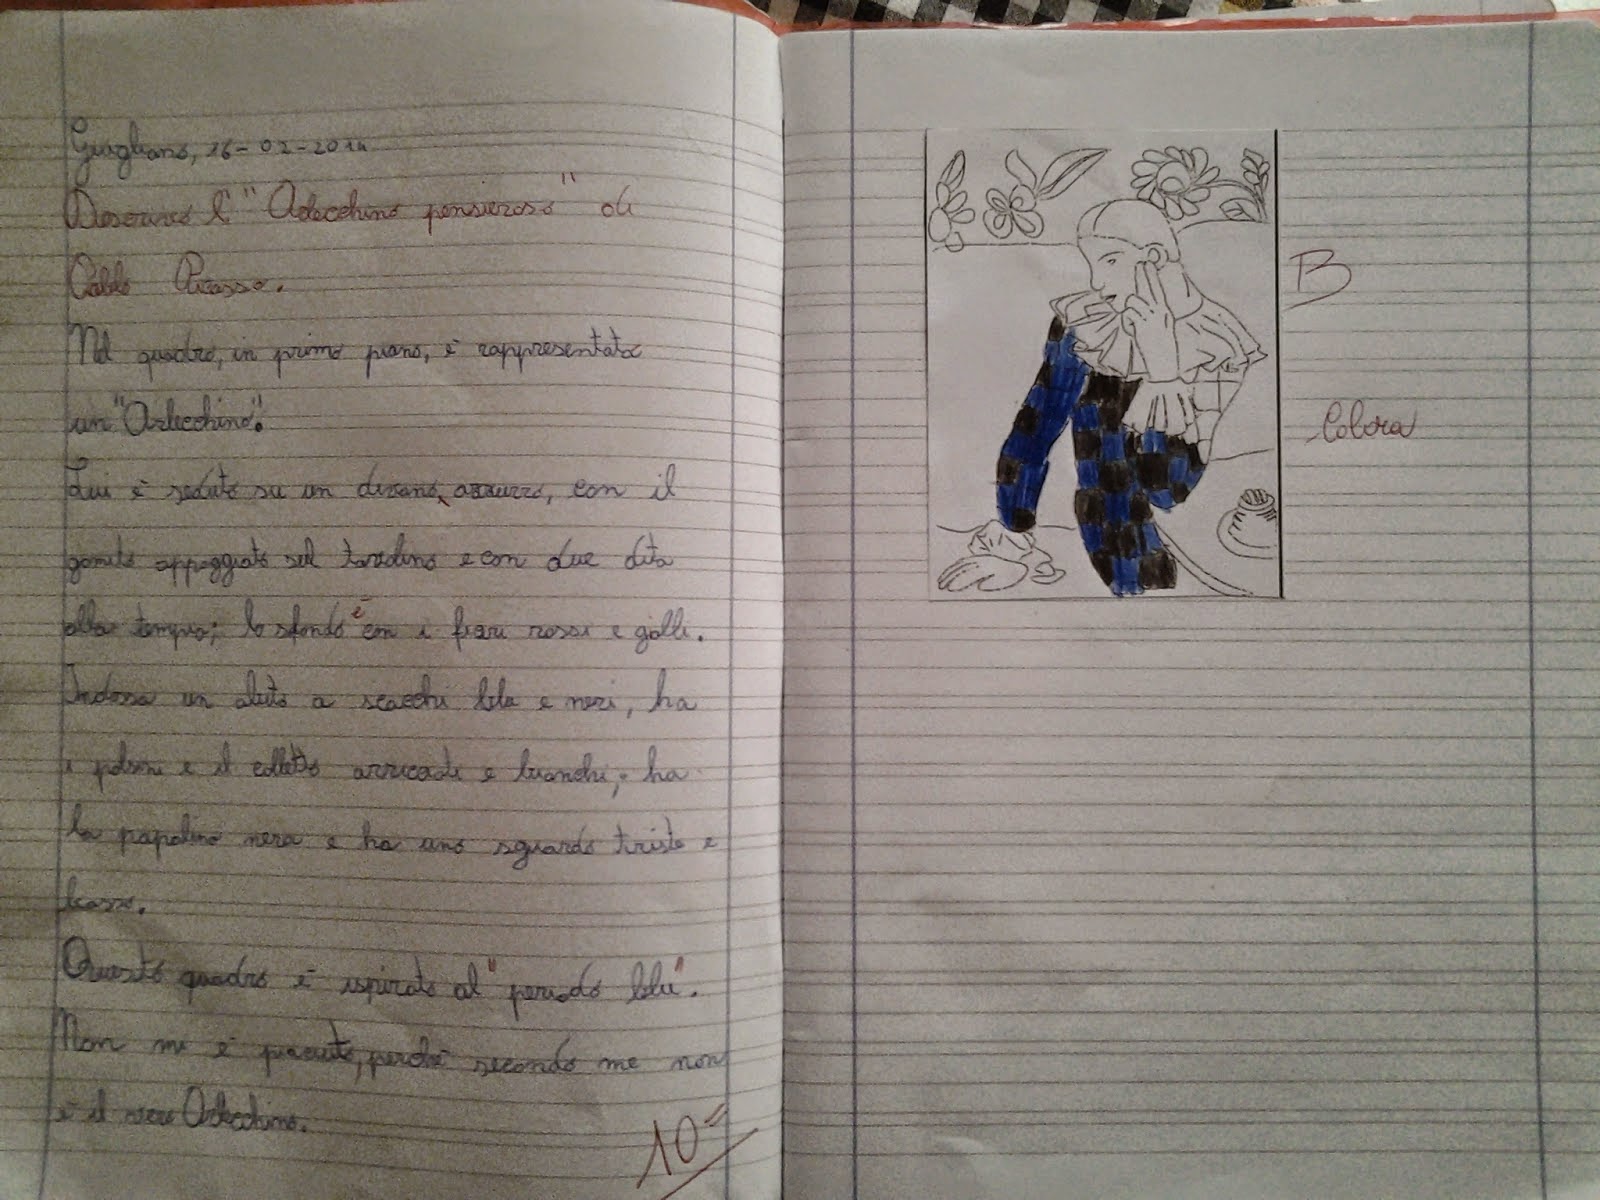 Giugliano, 26-02-2014
Descrivo l'"Arlecchino pensieroso" di
Pablo Picasso.
Nel quadro, in primo piano, è rappresentato
un "Arlecchino".
Lui è seduto su un divano, azzurro, con il
gomito appoggiato sul tavolino e con due dita
alla tempia; lo sfondo è con i fiori rossi e gialli.
Indossa un abito a scacchi blu e neri, ha
i polsini e il colletto arricciati e bianchi; ha
la papalina nera e ha uno sguardo triste e
basso.
Questo quadro è ispirato al "periodo blu".
Non mi è piaciuto, perchè secondo me non
è il vero Arlecchino.
10=
B
Colora